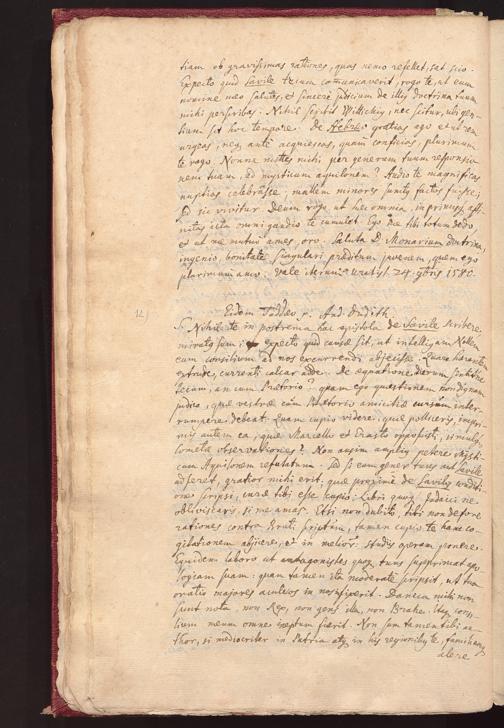 tiam ob gravissimas rationes, quas nemo refellet, sat scio.
Expecto quid Savile tecum com̃unicaverit, rogo te, ut eum
nomine meo salutes, et sincerè judicium de illius doctrina tuum
mihi perscribas. Nihil scribit Wittichius, nec scitur, ubi gen-
tium sit hoc tempore. De Hebreo gratias ago et ut rem
urgeas, neq, ante acquiescas, quam conficias, plurimum
te rogo. Nonne mittes mihi per generum tuum responsio
nem tuam, ad mysticum aquilonem? Audio te magnificas
nuptias celebrâsse; mallem minores sumtus factos fuisse;
Sed sic vivitur. Deum rogo ut hæc omnia, in primisq, affi-
nitas ista omni gaudio te cumulet. Ego me tibi totum dedo
et ut me mutuo ames, oro. Saluta D. Monavium doctrina,
ingenio, bonitate singulari præditum juvenem, quem ego
plurimum amo. Vale iterum. Uratisl. 24. 9bris 1580.
12)
Eidem Taddeo s. And. Dudith.
S. Nihil te in postrema hac epistola de Savile scribere
miratus sum; expecto quid causæ sit, ut intelligam Nollem
eum consilium ad nos excurrendi abjecisse. Quare horantem
extrude, currenti calcar adde. De æquatione dierum
tecum, an cum Prætorio? quam ego quæstionem non dignam
judico, quæ vestræ cum Prætorio amicitiæ cursum inter-
rumpere debeat. Quam cupio videre, quæ polliceris, impri-
mis autem ea, quæ Marcello et Erasto opposuisti, simulq,
Cometæ observationes? Non ausim amplius petere Mysti-
cum Aquilonem refutatum. Sed si eum gener tuus aut Savile
adferet, gratior mihi erit, quæ proximè de Savily
one scripsi, curæ tibi esse cupio; Libri quoq, Judaici ne
obliviscaris, si me amas. Etsi non dubito, tibi non defore
rationes contra Bruti scriptum, tamen cupio te hanc co-
gitationem abjicere, et in melioribus studiis operam ponere.
Equidem laboro ut antagonistes quoq, tuus supprimat apo
logiam suam: quam tamen ita moderatè scripsit, ut tua
oratio majores aculeos in nos infixerit. Daniæ mihi non
sunt nota, non Rex, non gens illa, non Brahe. Itaq, consi-
lium meum omne ineptum fuerit. Non sum tamen tibi au-
thor, si mediocriter in Patria atq, in his regionibus te, familiamq,
alere